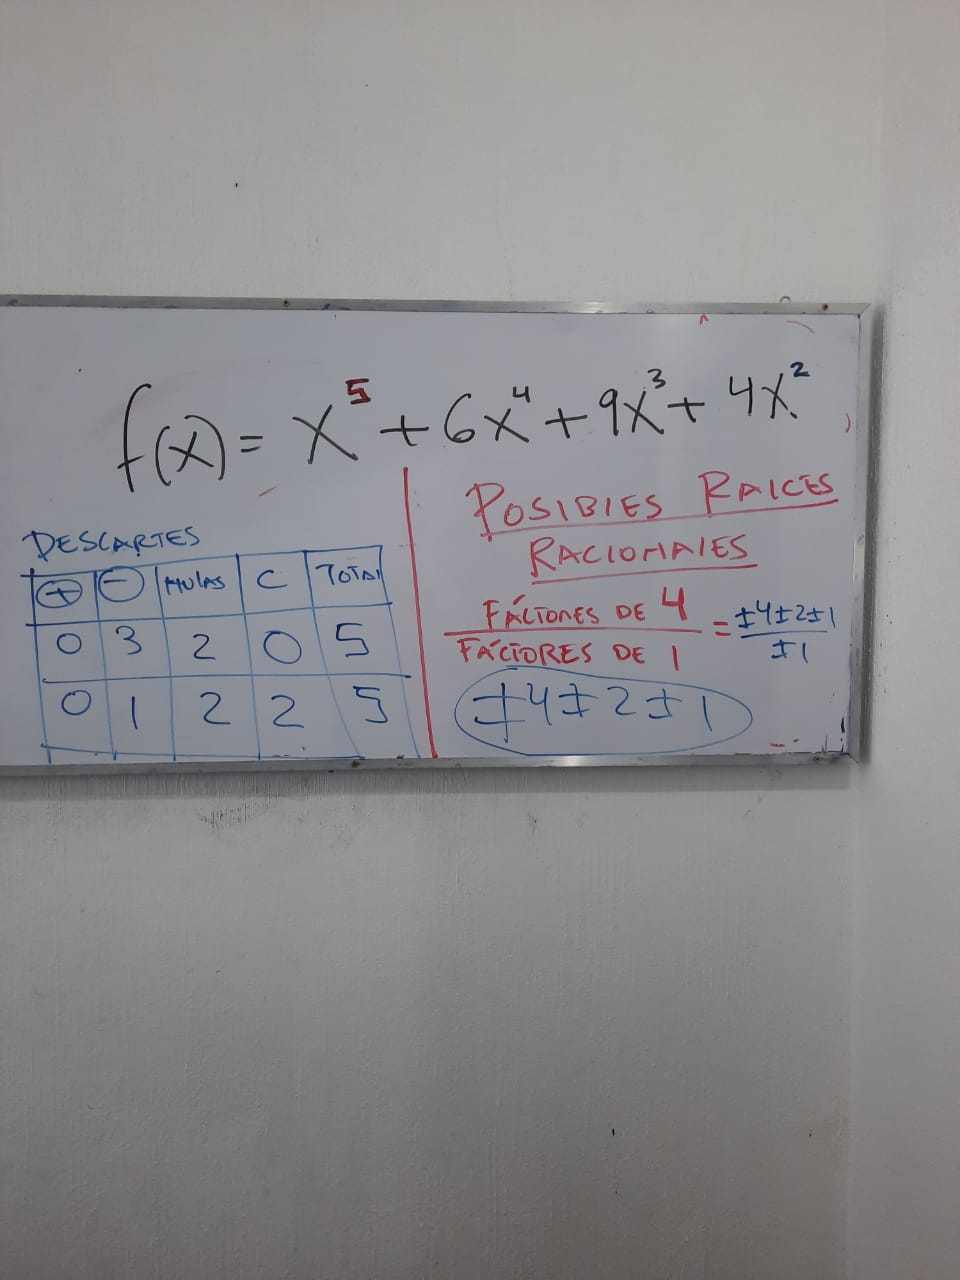 f(x) = x⁵ + 6x⁴ + 9x³ + 4x²
DESCARTES
+ − NULAS C TOTAL
0 3 2 0 5
0 1 2 2 5
POSIBLES RAICES
RACIONALES
FÁCTORES DE 4
FÁCTORES DE 1
= ±4±2±1
±1
±4±2±1